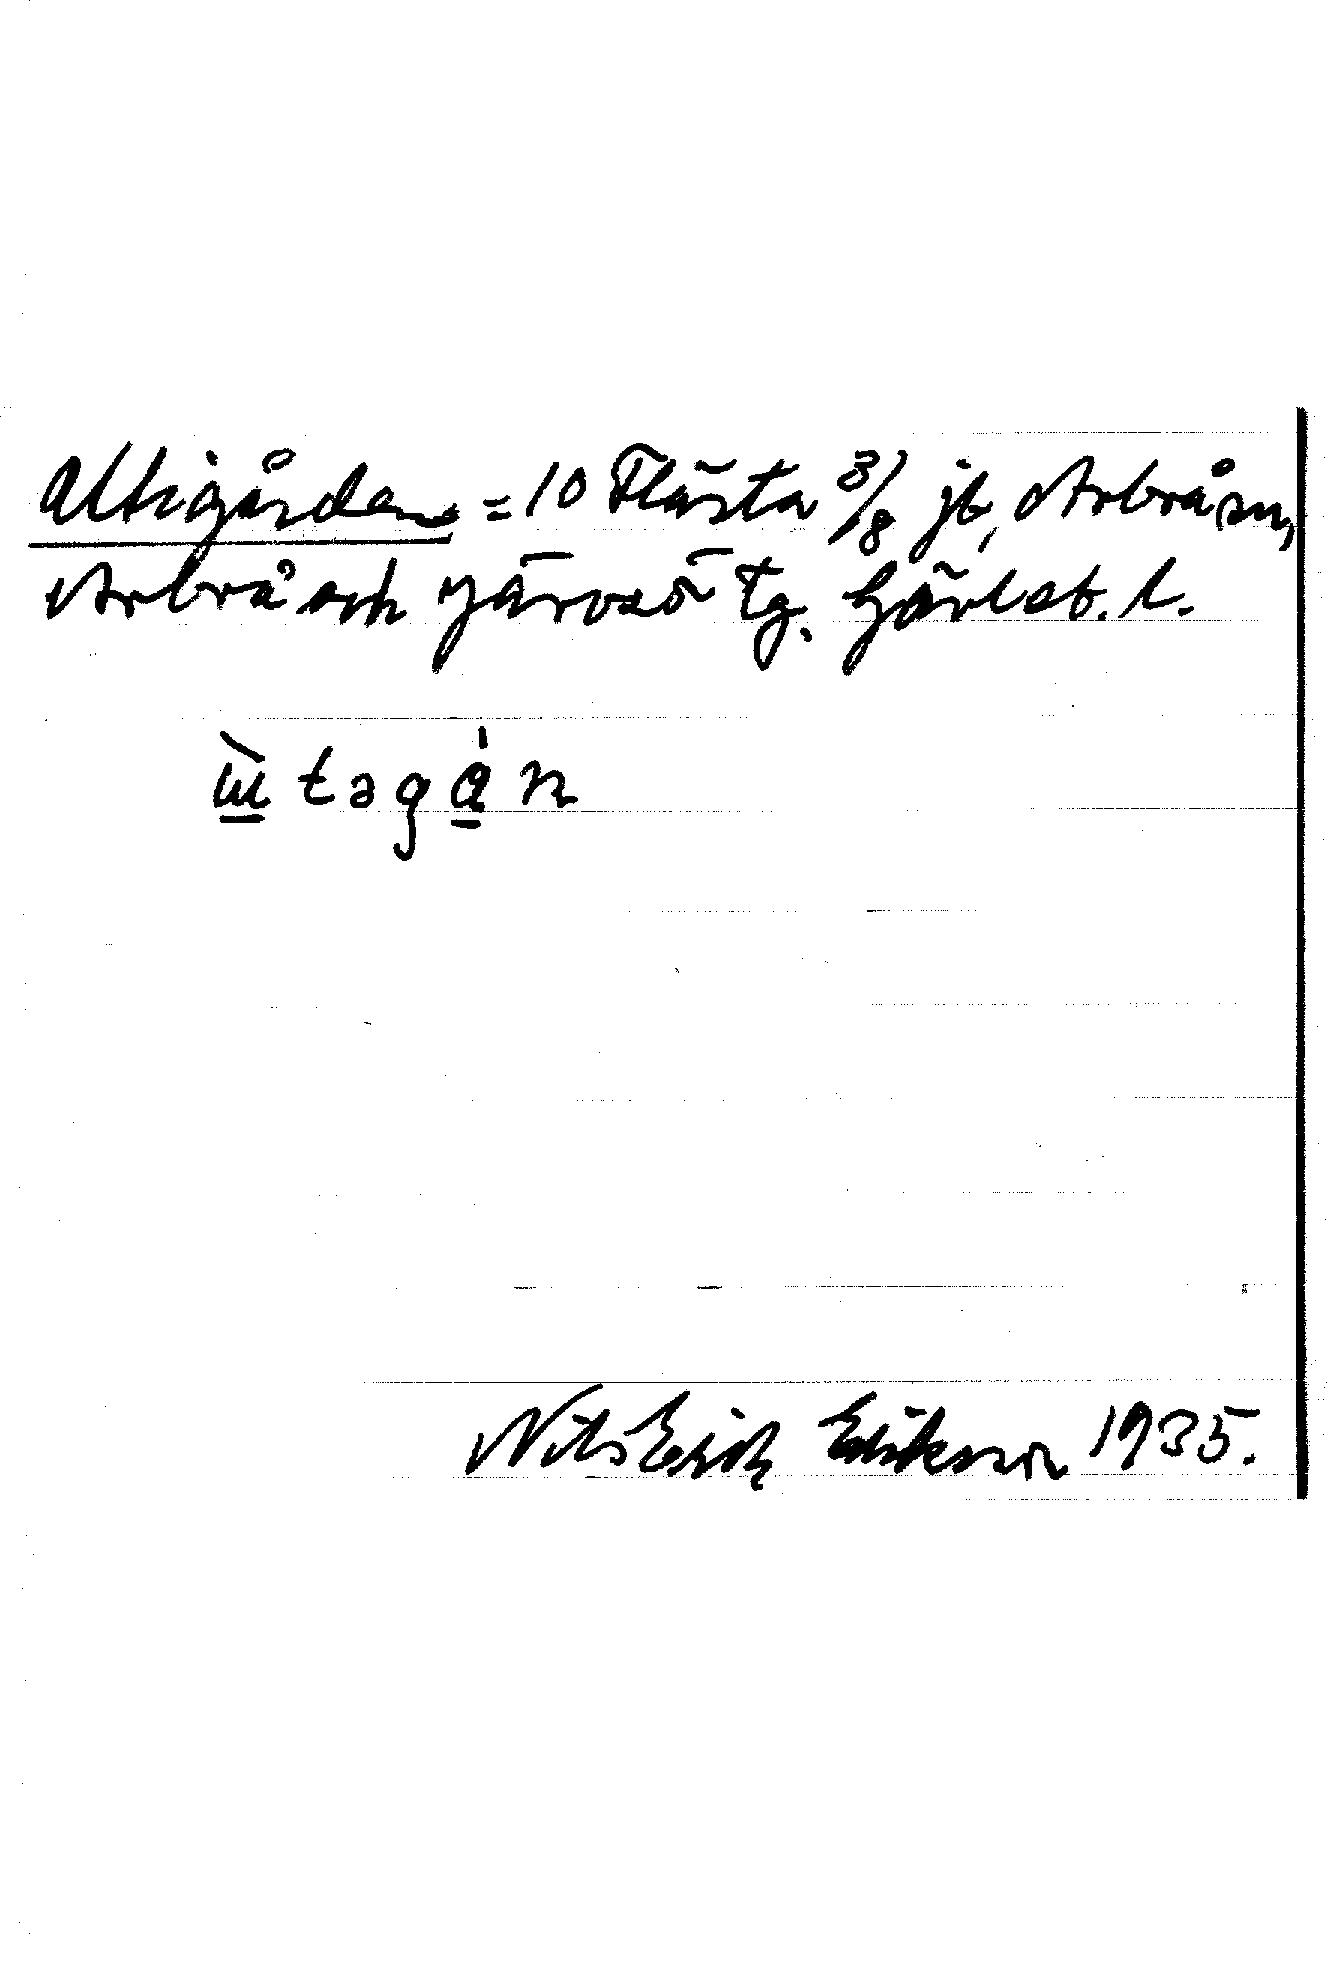 Uttigården = 10 Flästa 3/8 jb, Arbrå sn,
Arbrå och Järvsö tg. Gävleb. l.
ɯ̀təgȧn
Nils Erich Eriksson 1935.